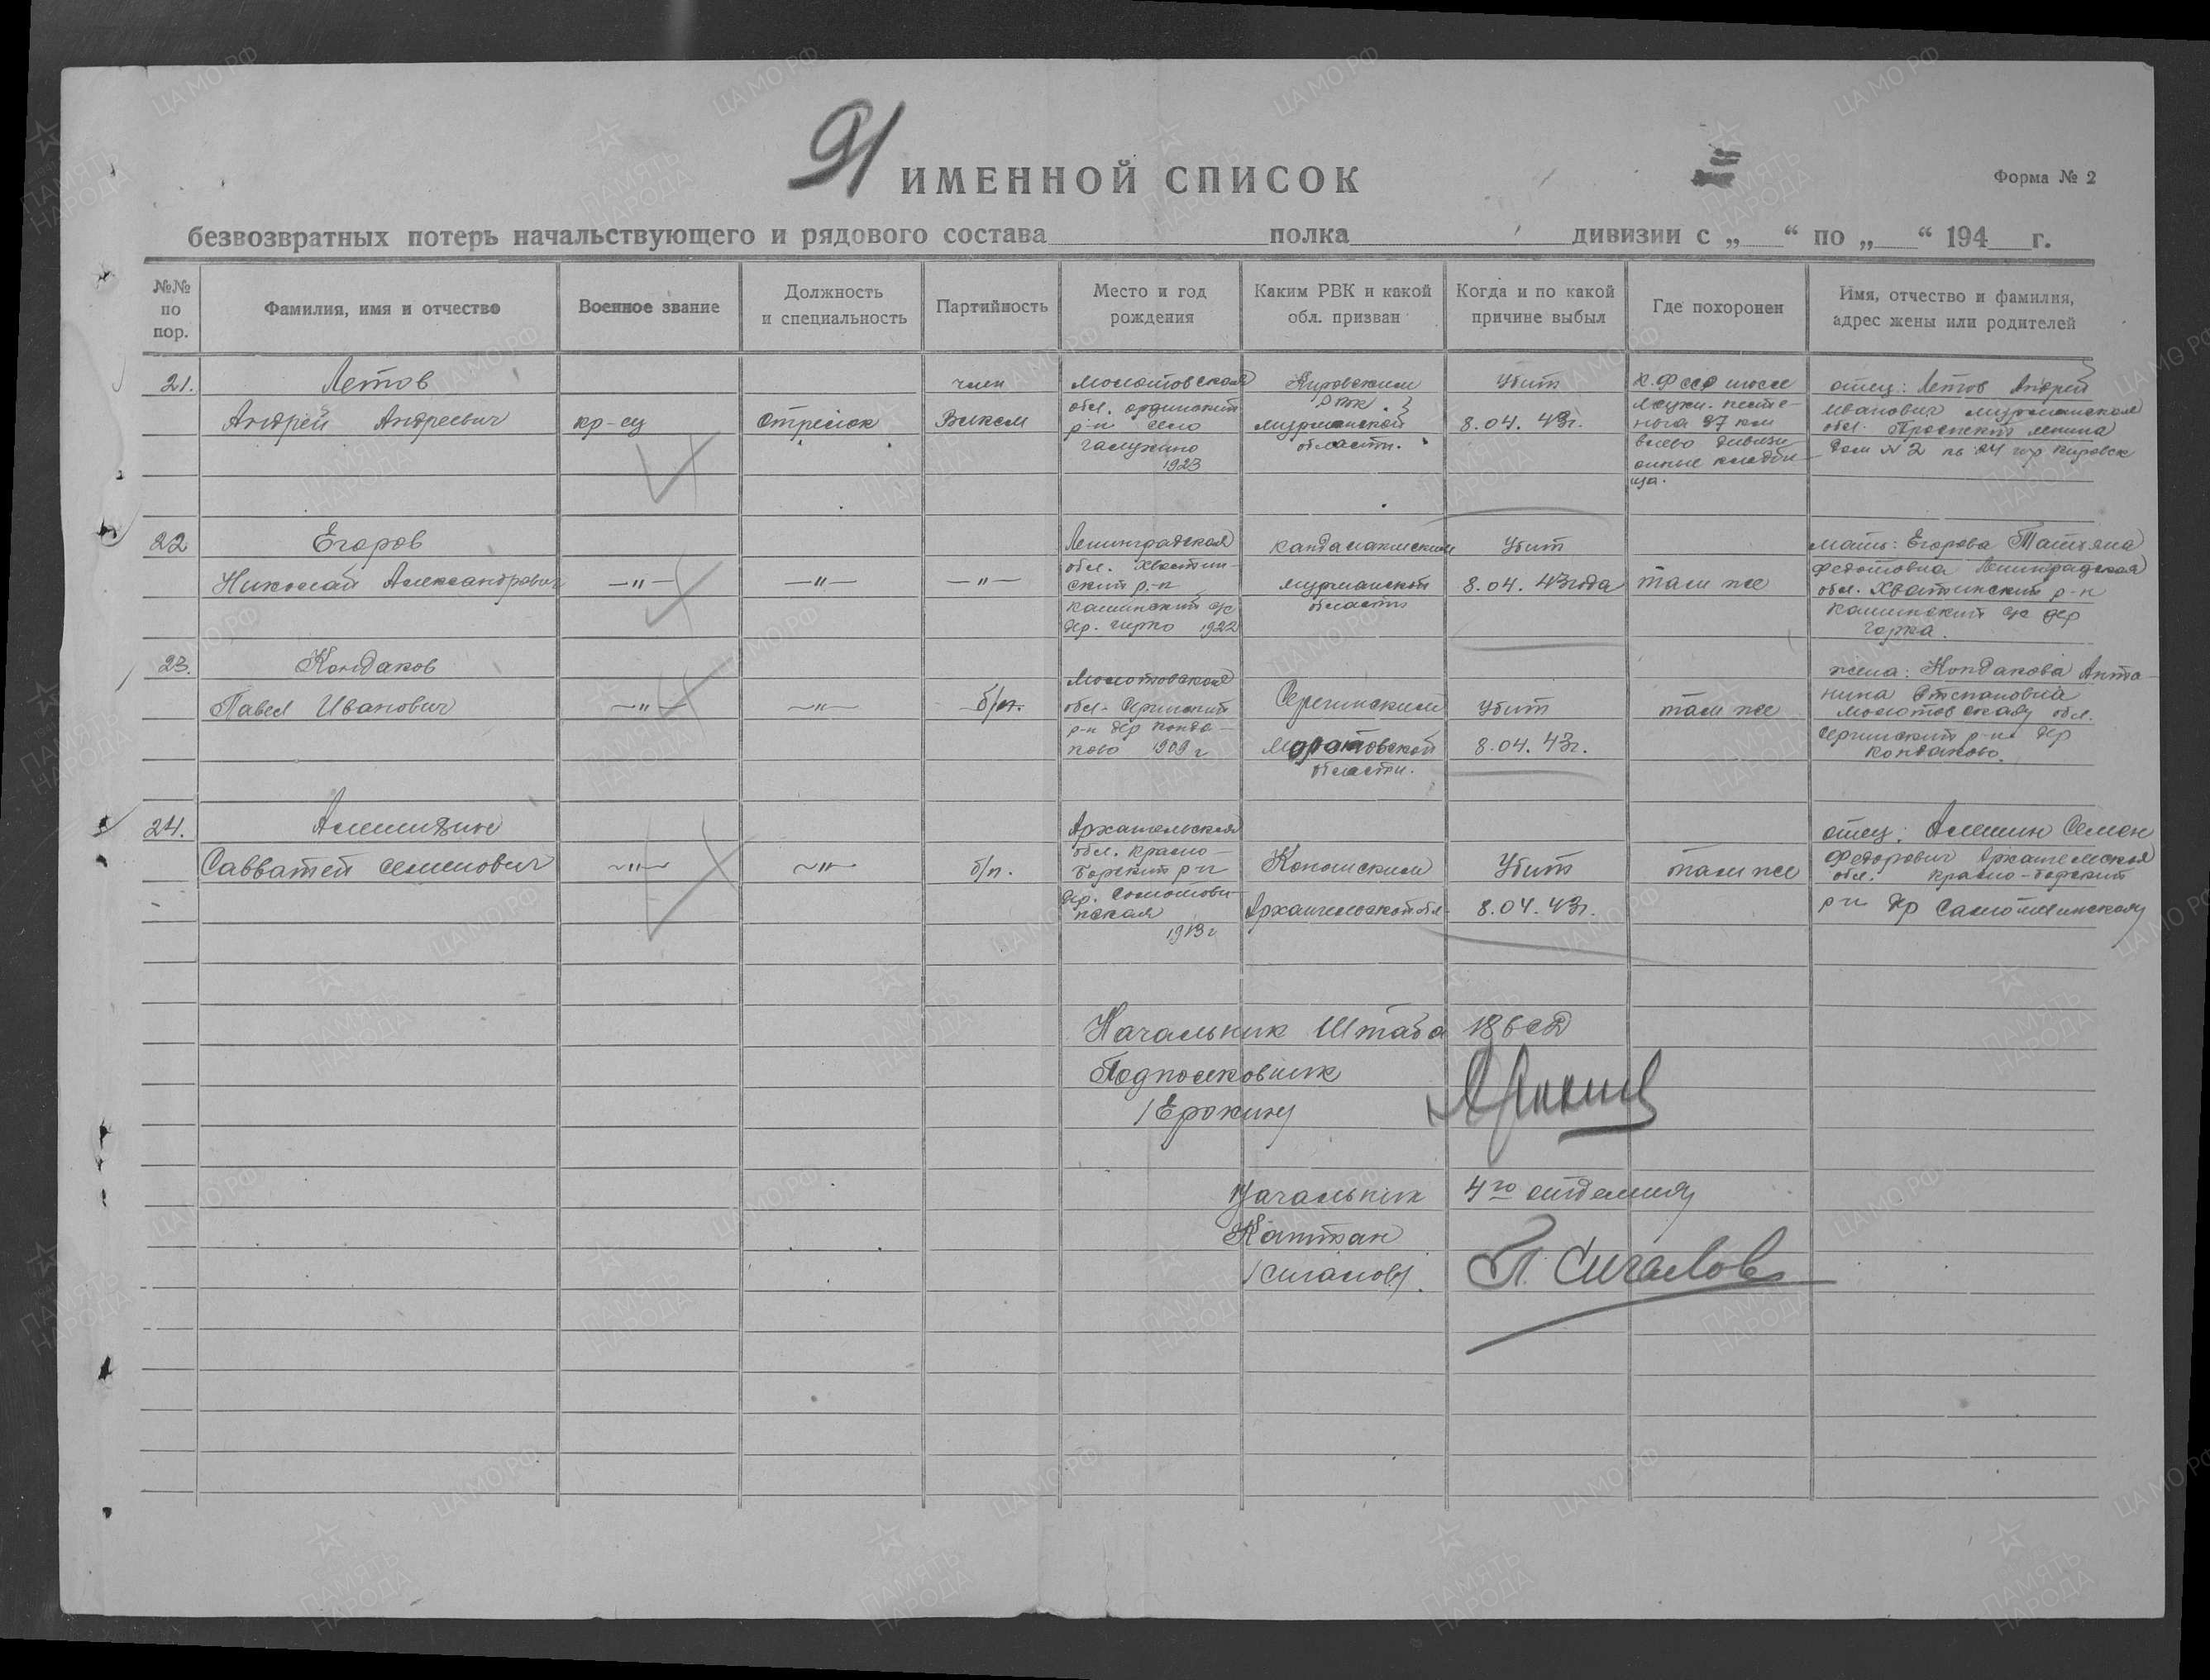 91
ИМЕННОЙ СПИСОК
Форма № 2
безвозвратных потерь начальствующего и рядового состава полка дивизии с „ “ по „ “ 194 г.
№№ по пор.
Фамилия, имя и отчество
Военное звание
Должность и специальность
Партийность
Место и год рождения
Каким РВК и какой обл. призван
Когда и по какой причине выбыл
Где похоронен
Имя, отчество и фамилия, адрес жены или родителей
21.
Летов
Андрей Андреевич
кр-ец
Стрелок
член
Влксм
Молотовская
обл. ординский
р-н село
1923
Кировским
РВК.
мурманской
области.
Убит
8.04.43г.
К.Фсср шоссе
нога 37 км
влево дивизи
онные кладби
ща.
отец: Летов Андрей
Иванович мурманская
обл. Проспект ленина
дом № 2 кв 24 гор Кировск
22
Егоров
Николай Александрович
—"—
—"—
—"—
Ленинградская
обл. Хвотин-
ский р-н
Кашинский с/с
дер. 1922
Кандалакшским
мурманской
области
Убит
8.04.43года
там же
мать: Егорова Татьяна
Федотовна Ленинградская
обл. Хвотинский р-н
Кашинский с/с дер
горка.
23.
Кондаков
Павел Иванович
—"—
—"—
б/п.
Молотовская
обл. Сергинский
р-н дер Конда-
ково 1909 г
Сергинским
Молотовской
области.
Убит
8.04.43г.
там же
жена: Кондакова Анто-
нина Степановна
Молотовская обл.
Сергинский р-н дер
Кондаково.
24.
Савватей Семенович
—"—
—"—
б/п.
Архангельская
обл. Красно-
борский р-н
дер.
1913 г
Коношским
Архангельской обл.
Убит
8.04.43г.
там же
отец: Алешин Семен
Федорович Архангельская
обл. Красно-борский
р-н дер
Начальник Штаба 186сд
Подполковник
/Ерохин/
Начальник 4го отделения
Капитан
/Сигалов/.
П. Сигалов
ЦАМО РФ
ПАМЯТЬ НАРОДА